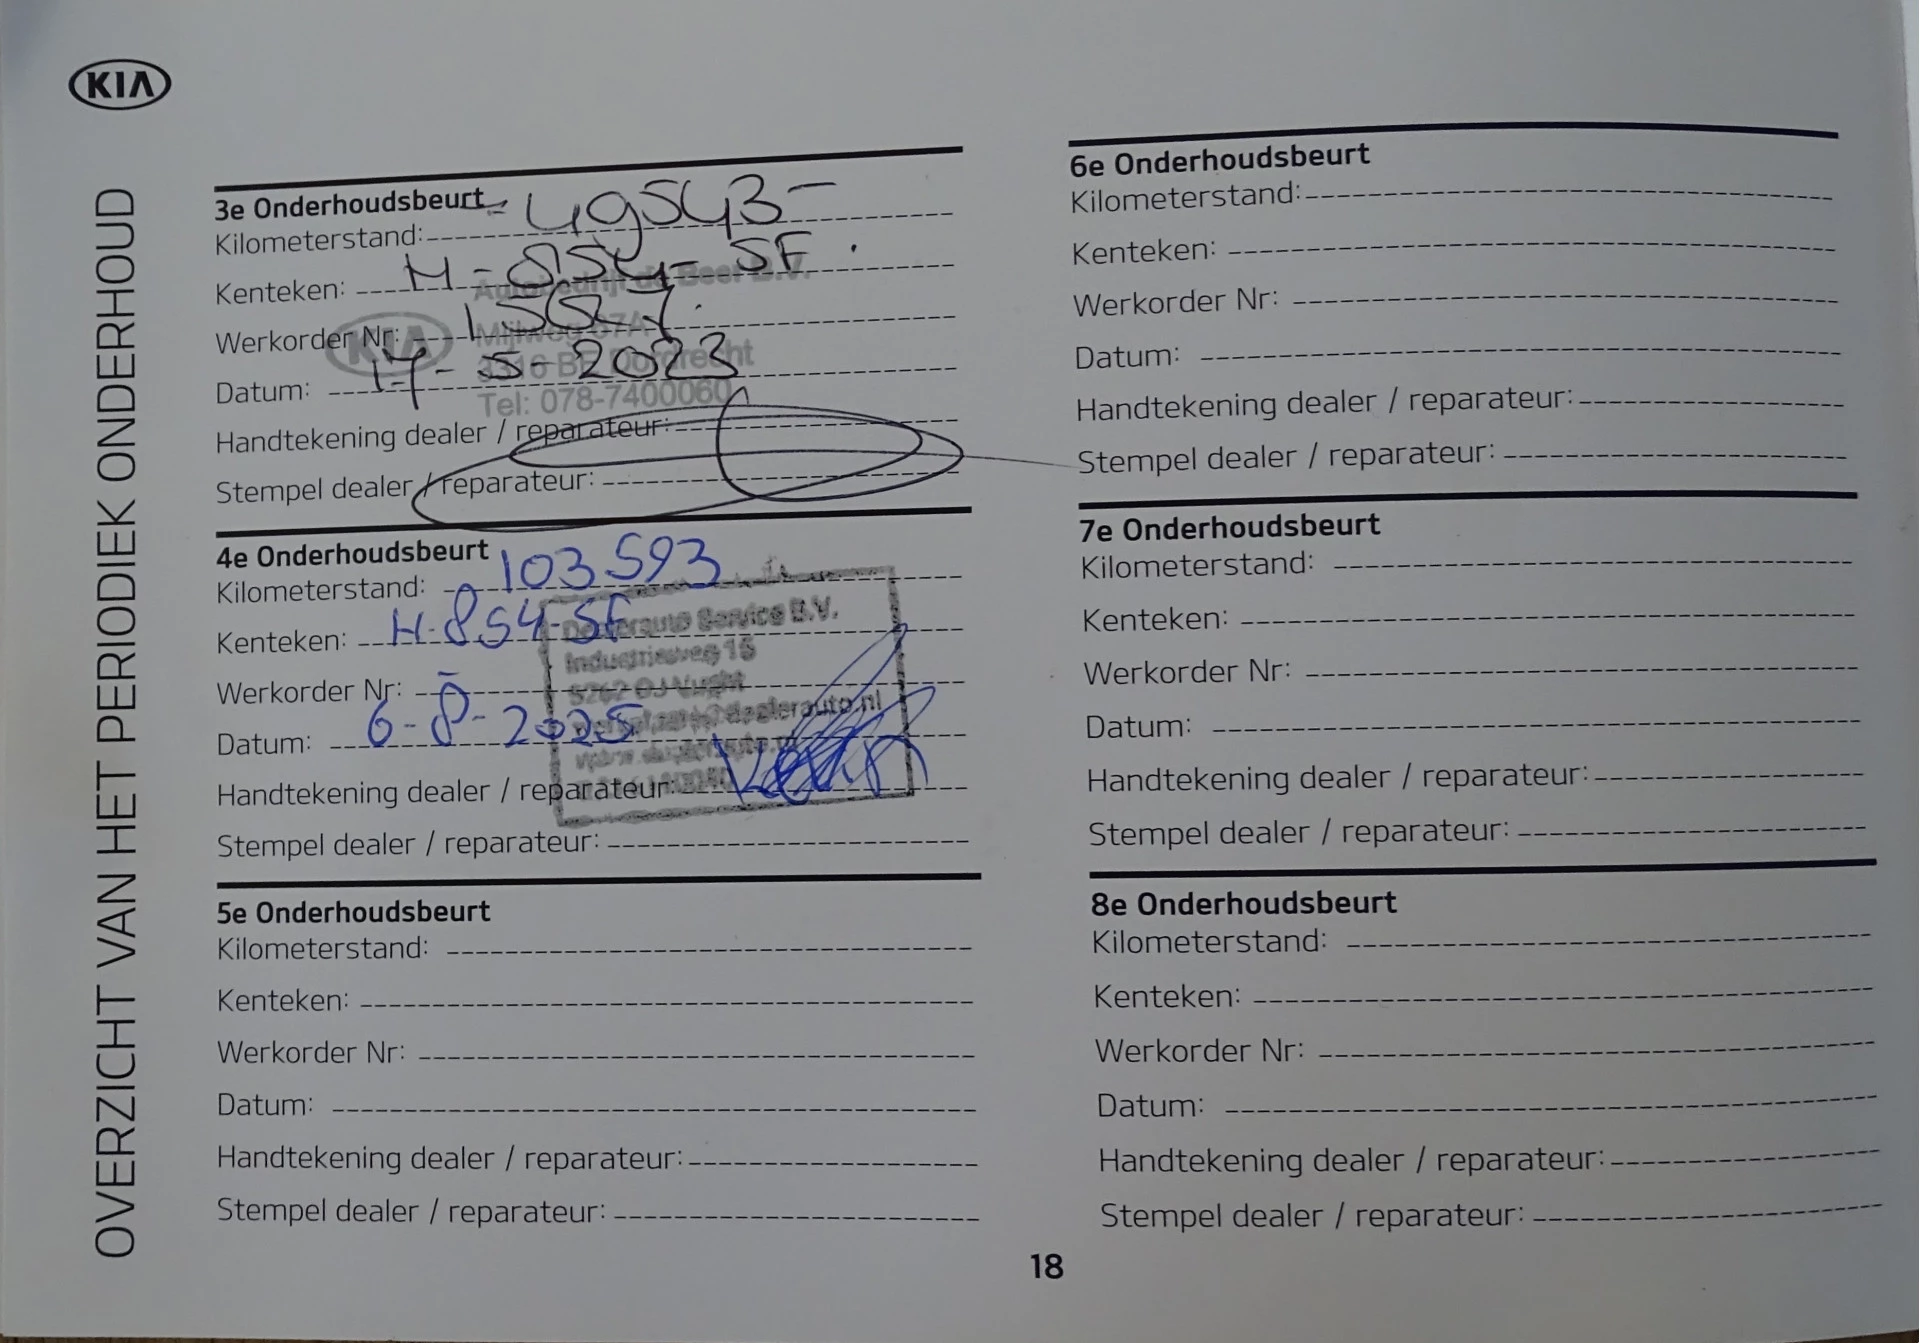 KIA
OVERZICHT VAN HET PERIODIEK ONDERHOUD
3e Onderhoudsbeurt
Kilometerstand: 49543-
Kenteken: H-854-SF.
Werkorder Nr:
Datum: 17-5-2023
Handtekening dealer / reparateur:
Stempel dealer / reparateur:
Autobedrijf de Beer B.V.
KIA
Mijlweg 67A
3316 BE Dordrecht
Tel: 078-7400060
4e Onderhoudsbeurt
Kilometerstand: 103593
Kenteken: H-854-SF
Werkorder Nr: -
Datum: 6-8-2025
Handtekening dealer / reparateur:
Stempel dealer / reparateur:
Dealerauto Service B.V.
Industrieweg 15
5262 GJ Vught
@dealerauto.nl
5e Onderhoudsbeurt
Kilometerstand:
Kenteken:
Werkorder Nr:
Datum:
Handtekening dealer / reparateur:
Stempel dealer / reparateur:
6e Onderhoudsbeurt
Kilometerstand:
Kenteken:
Werkorder Nr:
Datum:
Handtekening dealer / reparateur:
Stempel dealer / reparateur:
7e Onderhoudsbeurt
Kilometerstand:
Kenteken:
Werkorder Nr:
Datum:
Handtekening dealer / reparateur:
Stempel dealer / reparateur:
8e Onderhoudsbeurt
Kilometerstand:
Kenteken:
Werkorder Nr:
Datum:
Handtekening dealer / reparateur:
Stempel dealer / reparateur:
18